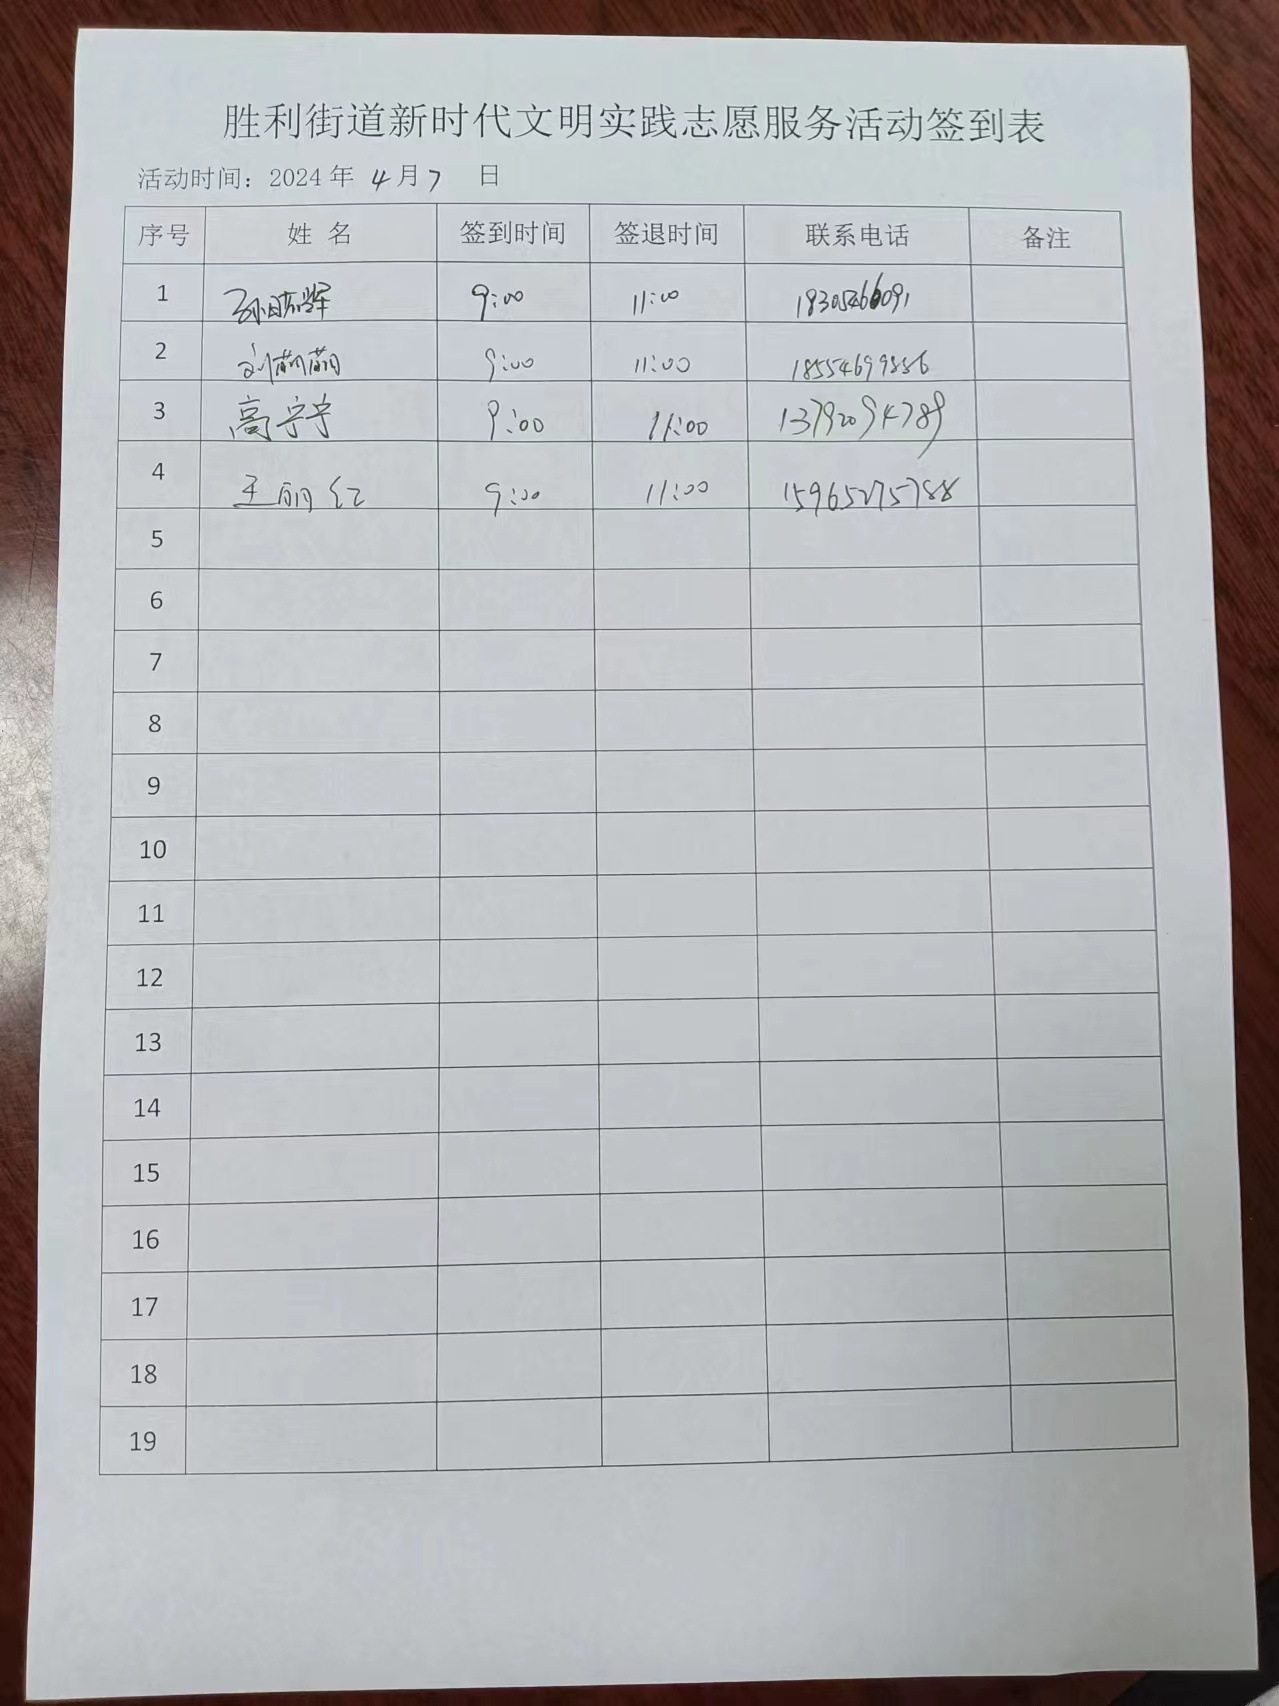 胜利街道新时代文明实践志愿服务活动签到表
活动时间：2024年 4月7 日
序号 姓 名 签到时间 签退时间 联系电话 备注
1 9:00 11:00
2 刘萌萌 9:00 11:00 18554699886
3 高宁宁 9:00 11:00 13792094789
4 王丽红 9:00 11:00 15965275788
5
6
7
8
9
10
11
12
13
14
15
16
17
18
19